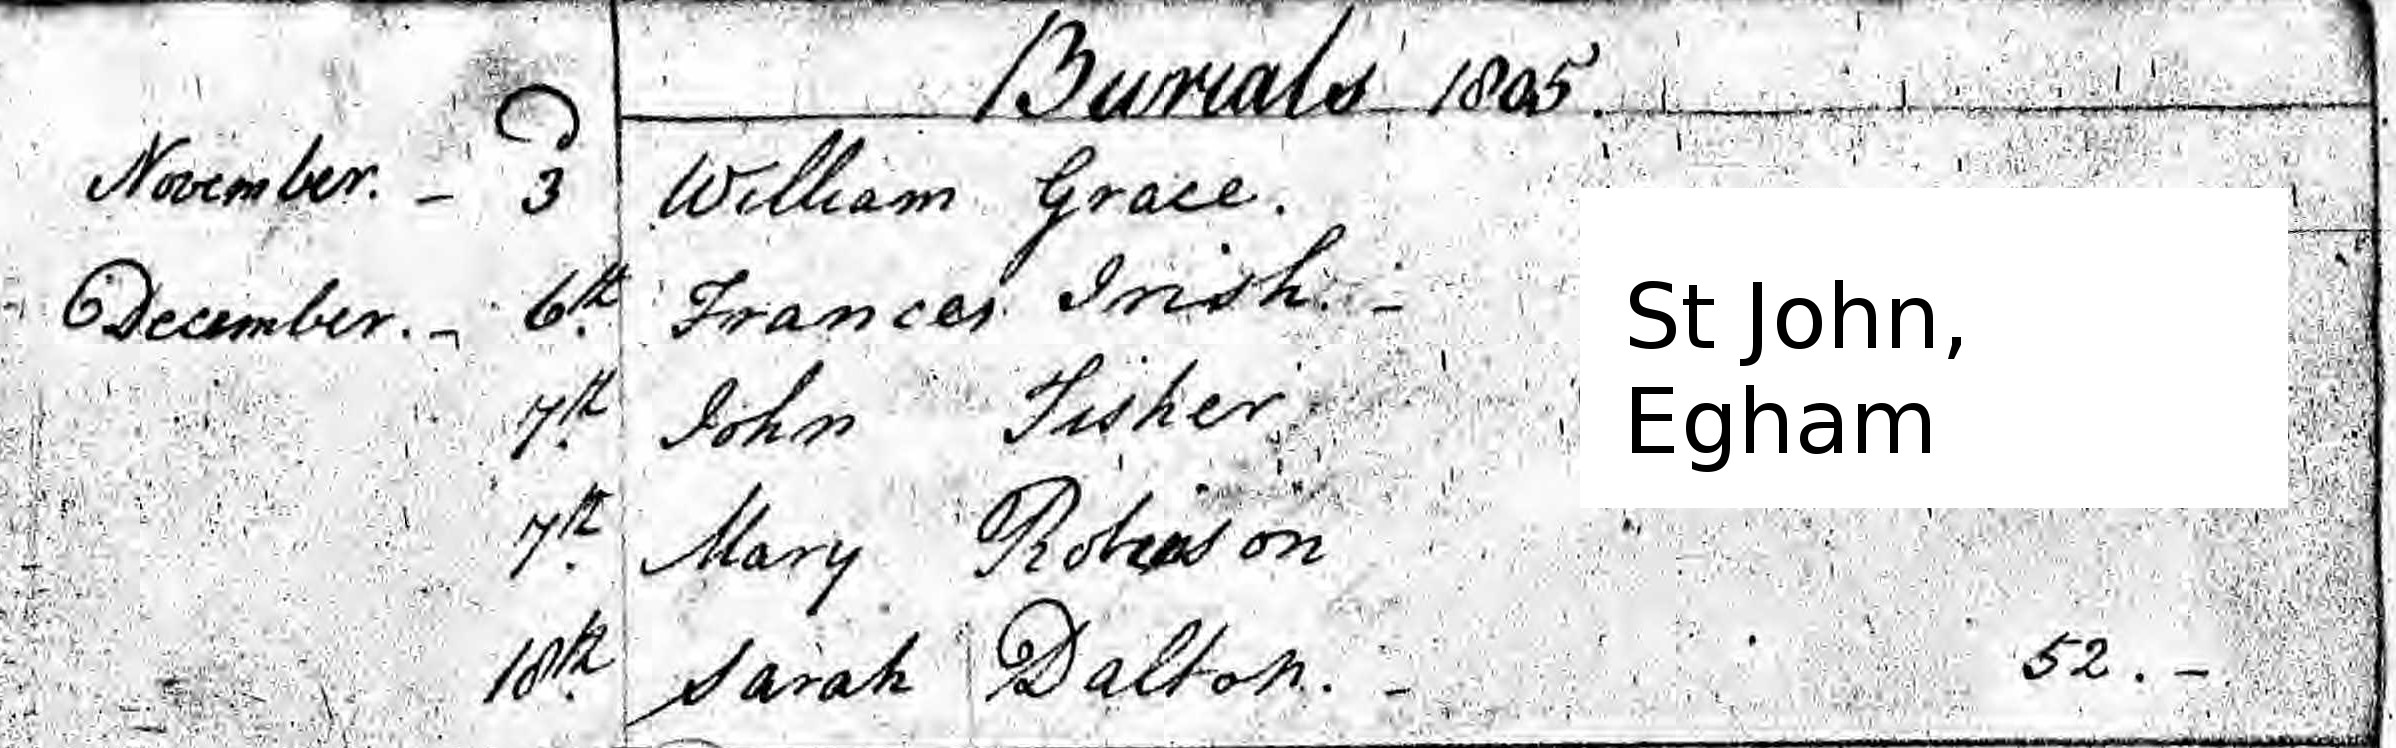 Burials 1805.
November. - 3 William Grace.
December. - 6th Frances Irish. -
7th John Fisher
7th Mary
18th Sarah Dalton. - 52. -
St John,
Egham